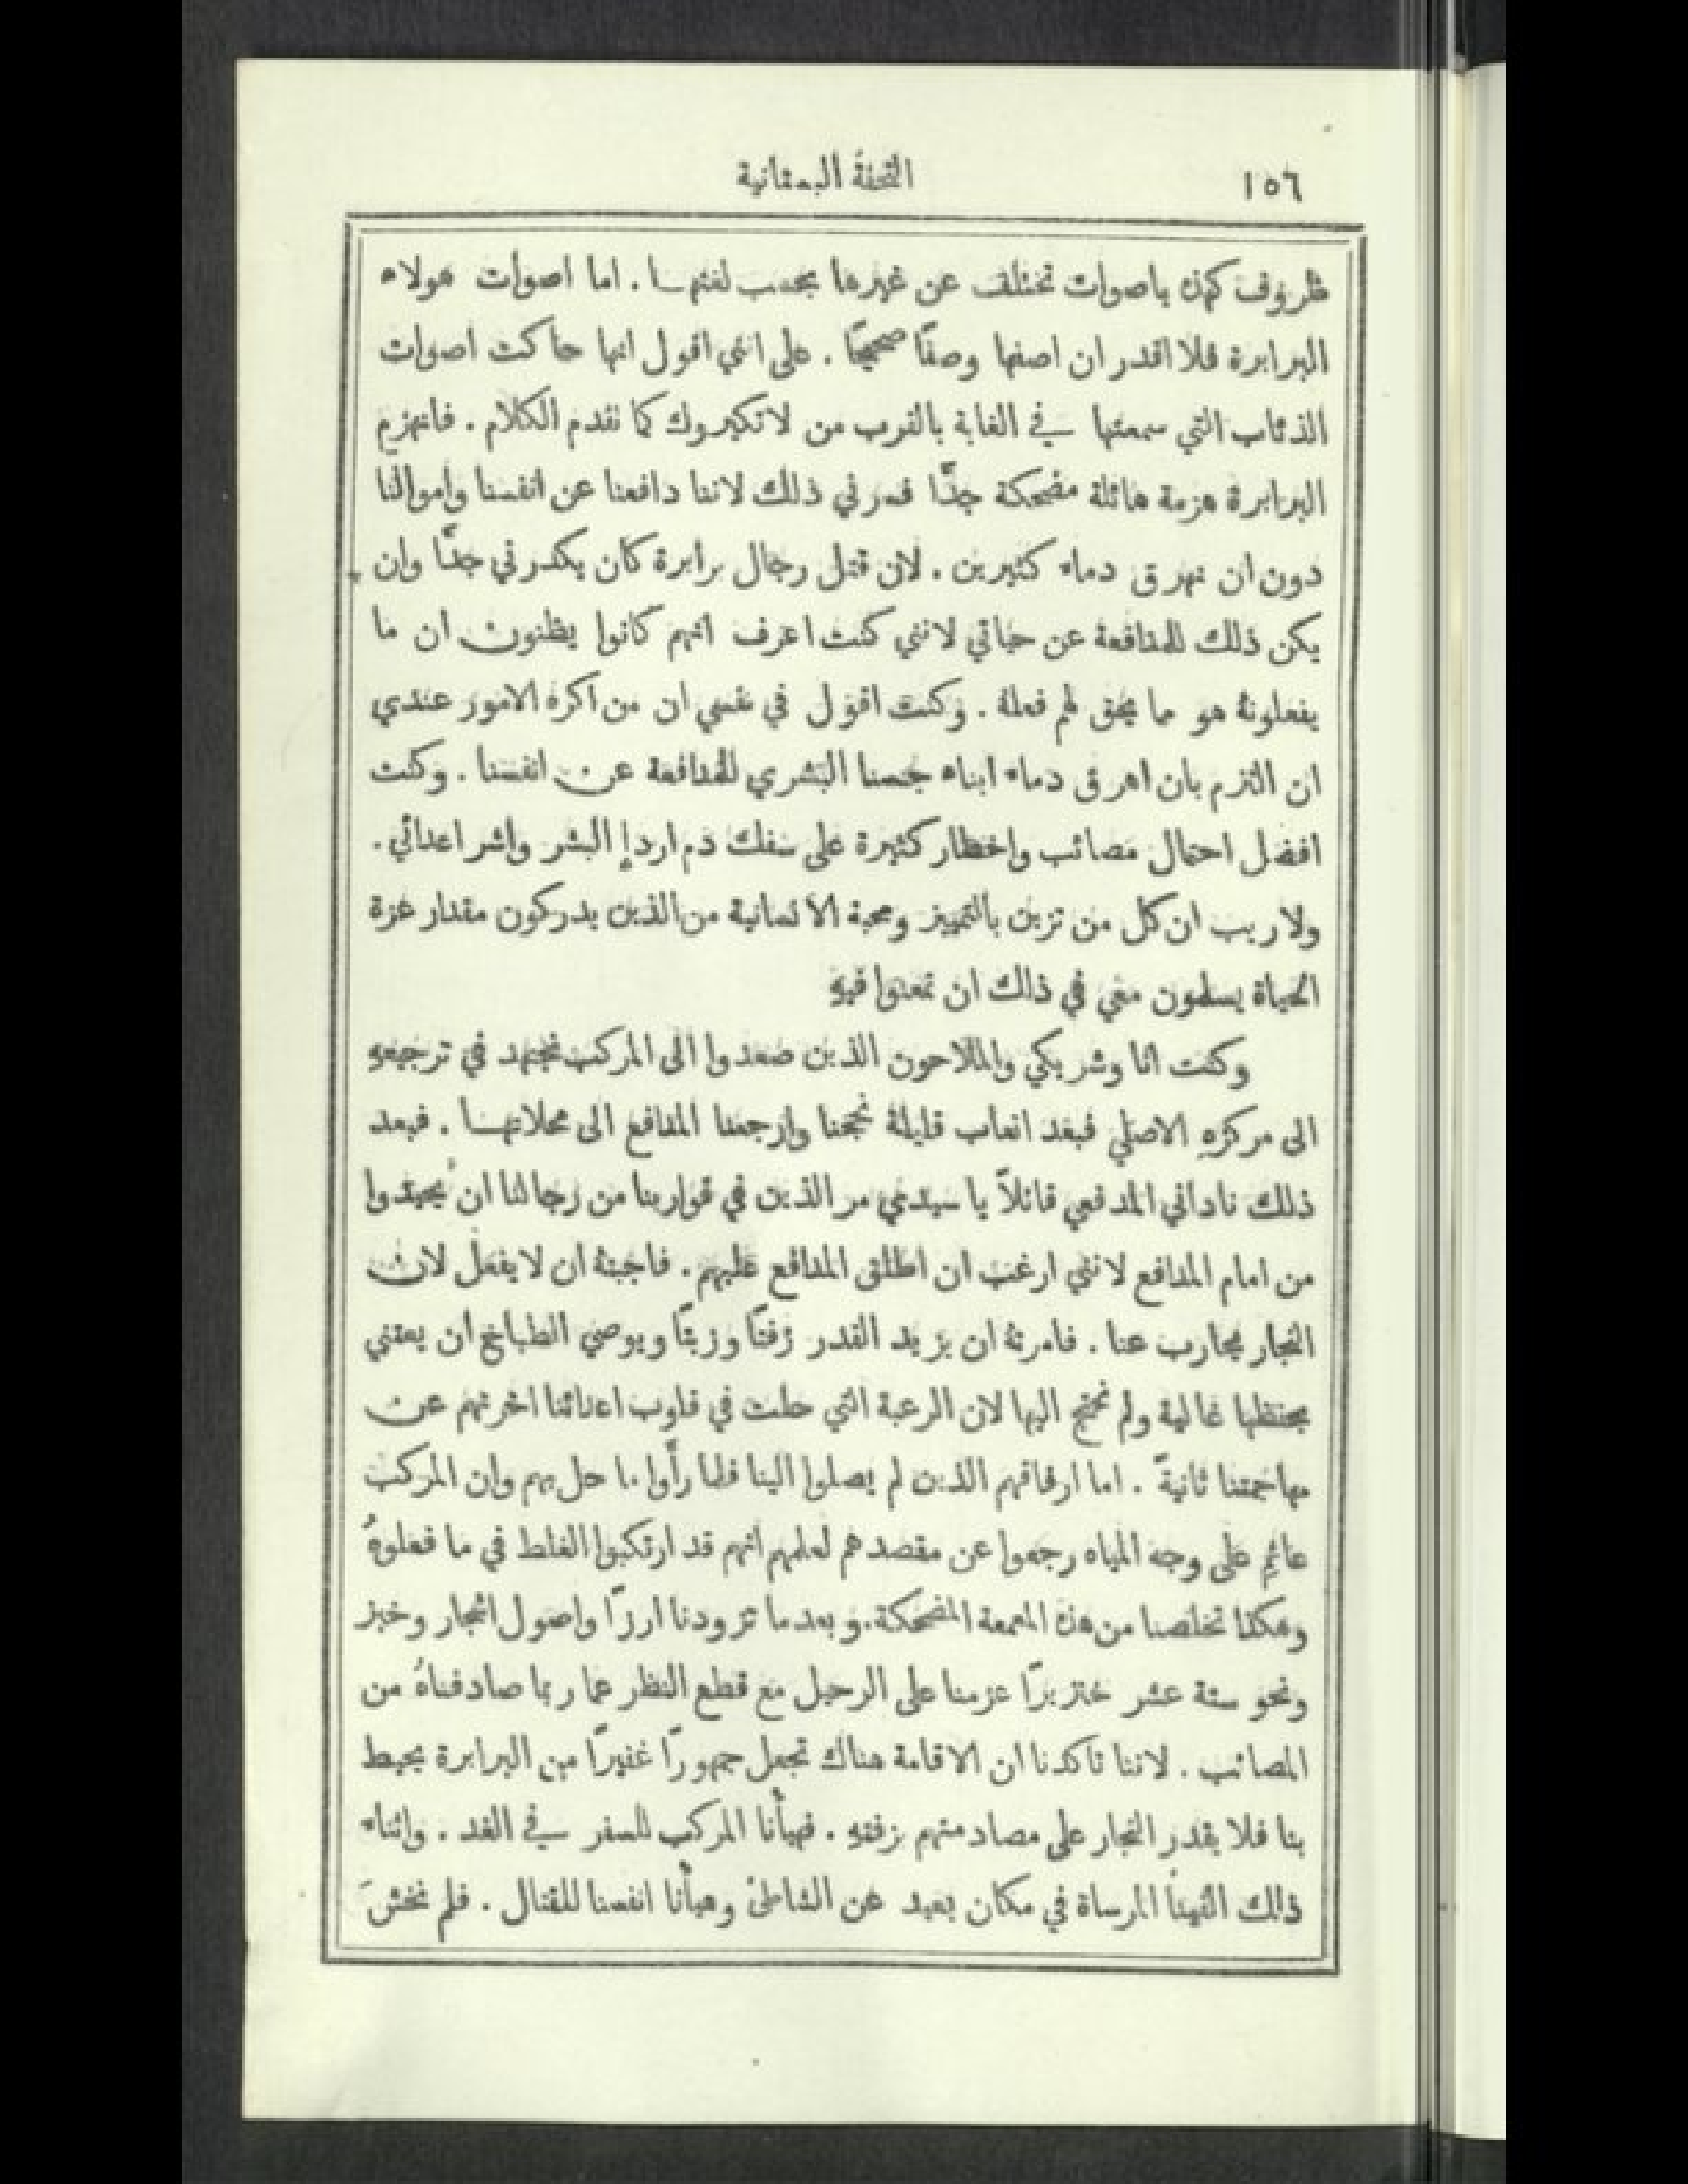 ١٥٦
التحفةُ البستانية
ظروف كهذه باصوات تختلف عن غيرها بحسب لغتهـا. اما اصوات هولاء
البرابرة فلا اقدر ان اصفها وصفًا صحيحًا. على انني اقول انها حاكت اصوات
الذئاب التي سمعتها في الغابة بالقرب من لانكيدوك كما تقدم الكلام. فانهزم
البرابرة هزمة هائلة مضحكة جدًّا فسرني ذلك لاننا دافعنا عن انفسنا واموالنا
دون ان نهرق دماء كثيرين. لان قتل رجال برابرة كان يكدرني جدًّا وان
يكن ذلك للمدافعة عن حياتي لانني كنت اعرف انهم كانوا يظنون ان ما
يفعلونهُ هو مما يحق لهم فعلهُ. وكنت اقول في نفسي ان من اكره الامور عندي
ان التزم بان اهرق دماء ابناء جنسنا البشري للمدافعة عن انفسنا. وكنت
افضل احتمال مصائب واخطار كثيرة على سفك دم اردإ البشر واشر اعدائي.
ولا ريب ان كل من تزين بالتمييز ومحبة الانسانية من الذين يدركون مقدار عزة
الحياة يسلمون معي في ذلك ان تمعنوا فيهِ
وكنت انا وشريكي والملاحون الذين صعدوا الى المركب نجتهد في ترجيعهِ
الى مركزهِ الاصلي فبعد اتعاب قليلة نجحنا وارجعنا المدافع الى محلاتهـا. فبعد
ذلك ناداني المدفعي قائلاً يا سيدي مر الذين في قواربنا من رجالنا ان يحيدوا
من امام المدافع لانني ارغب ان اطلق المدافع عليهم. فاجبتهُ ان لا يفعل لان
النجار يحارب عنا. فامرتهُ ان يزيد القدر زفتًا وزيتًا ويوصي الطباخ ان يعتني
بحفظها غالية ولم نحتج اليها لان الرعبة التي حلت في قلوب اعدائنا اخرتهم عن
مهاجمتنا ثانيةً. اما ارفاقهم الذين لم يصلوا الينا فلما رأوا ما حل بهم وان المركب
عائمٍ على وجه المياه رجعوا عن مقصدهم لعلمهم انهم قد ارتكبوا الغلط في ما فعلوهُ
وهكذا تخلصنا من هذه المعمعة المضحكة. وبعد ما تزودنا ارزًّا واصول اشجار وخبز
ونحو ستة عشر خنزيرًا عزمنا على الرحيل مع قطع النظر عما ربما صادفناهُ من
المصائب. لاننا تاكدنا ان الاقامة هناك تجعل جمهورًا غفيرًا من البرابرة يحيط
بنا فلا يقدر النجار على مصادمتهم بزفتهِ. فهيأنا المركب للسفر في الغد. واثناء
ذلك القينا المرساة في مكان بعيد عن الشاطئ وهيأنا انفسنا للقتال. فلم نخشَ